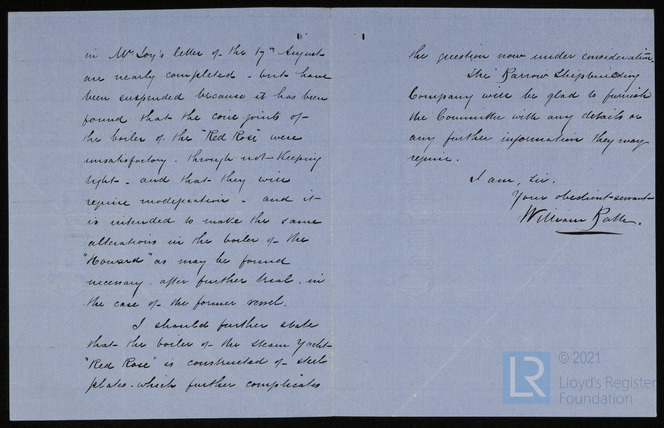 in Mr Joy's letter of the 17th August
are nearly completed - but have
been suspended because it has been
found that the cone joints of
the boiler of the "Red Rose" were
unsatisfactory - through not keeping
tight - and that they will
require modification - and it
is intended to make the same
alterations in the boiler of the
"Howard" as may be found
necessary, after further trial, in
the case of the former vessel.
I should further state
that the boiler of the Steam Yacht
"Red Rose" is constructed of steel
plates - which further complicates
the question now under consideration
The Barrow Shipbuilding
Company will be glad to furnish
the Committee with any details or
any further information they may
require.
I am, Sir,
Your obedient servant
William
© 2021
LR
Lloyd's Register
Foundation